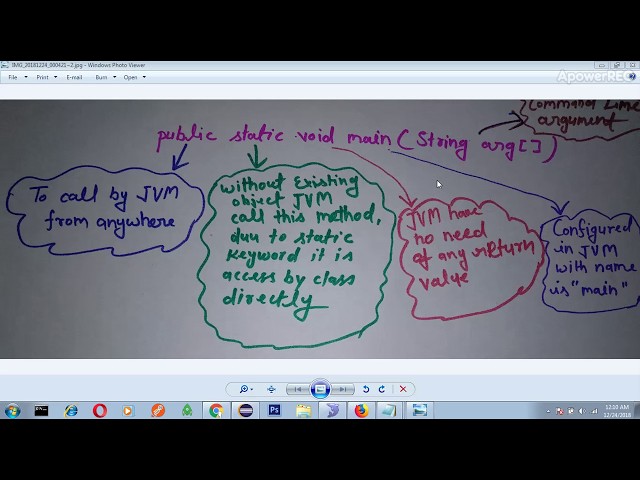 IMG_20181224_000421~2.jpg - Windows Photo Viewer
File Print E-mail Burn Open
ApowerREC
Command Line
argument
public static void main (String arg[])
To call by JVM
from anywhere
without Existing
object JVM
call this method,
duu to static
Keyword it is
access by class
directly
JVM have
no need
of any return
value
Configured
in JVM
with name
is "main"
12:10 AM
12/24/2018